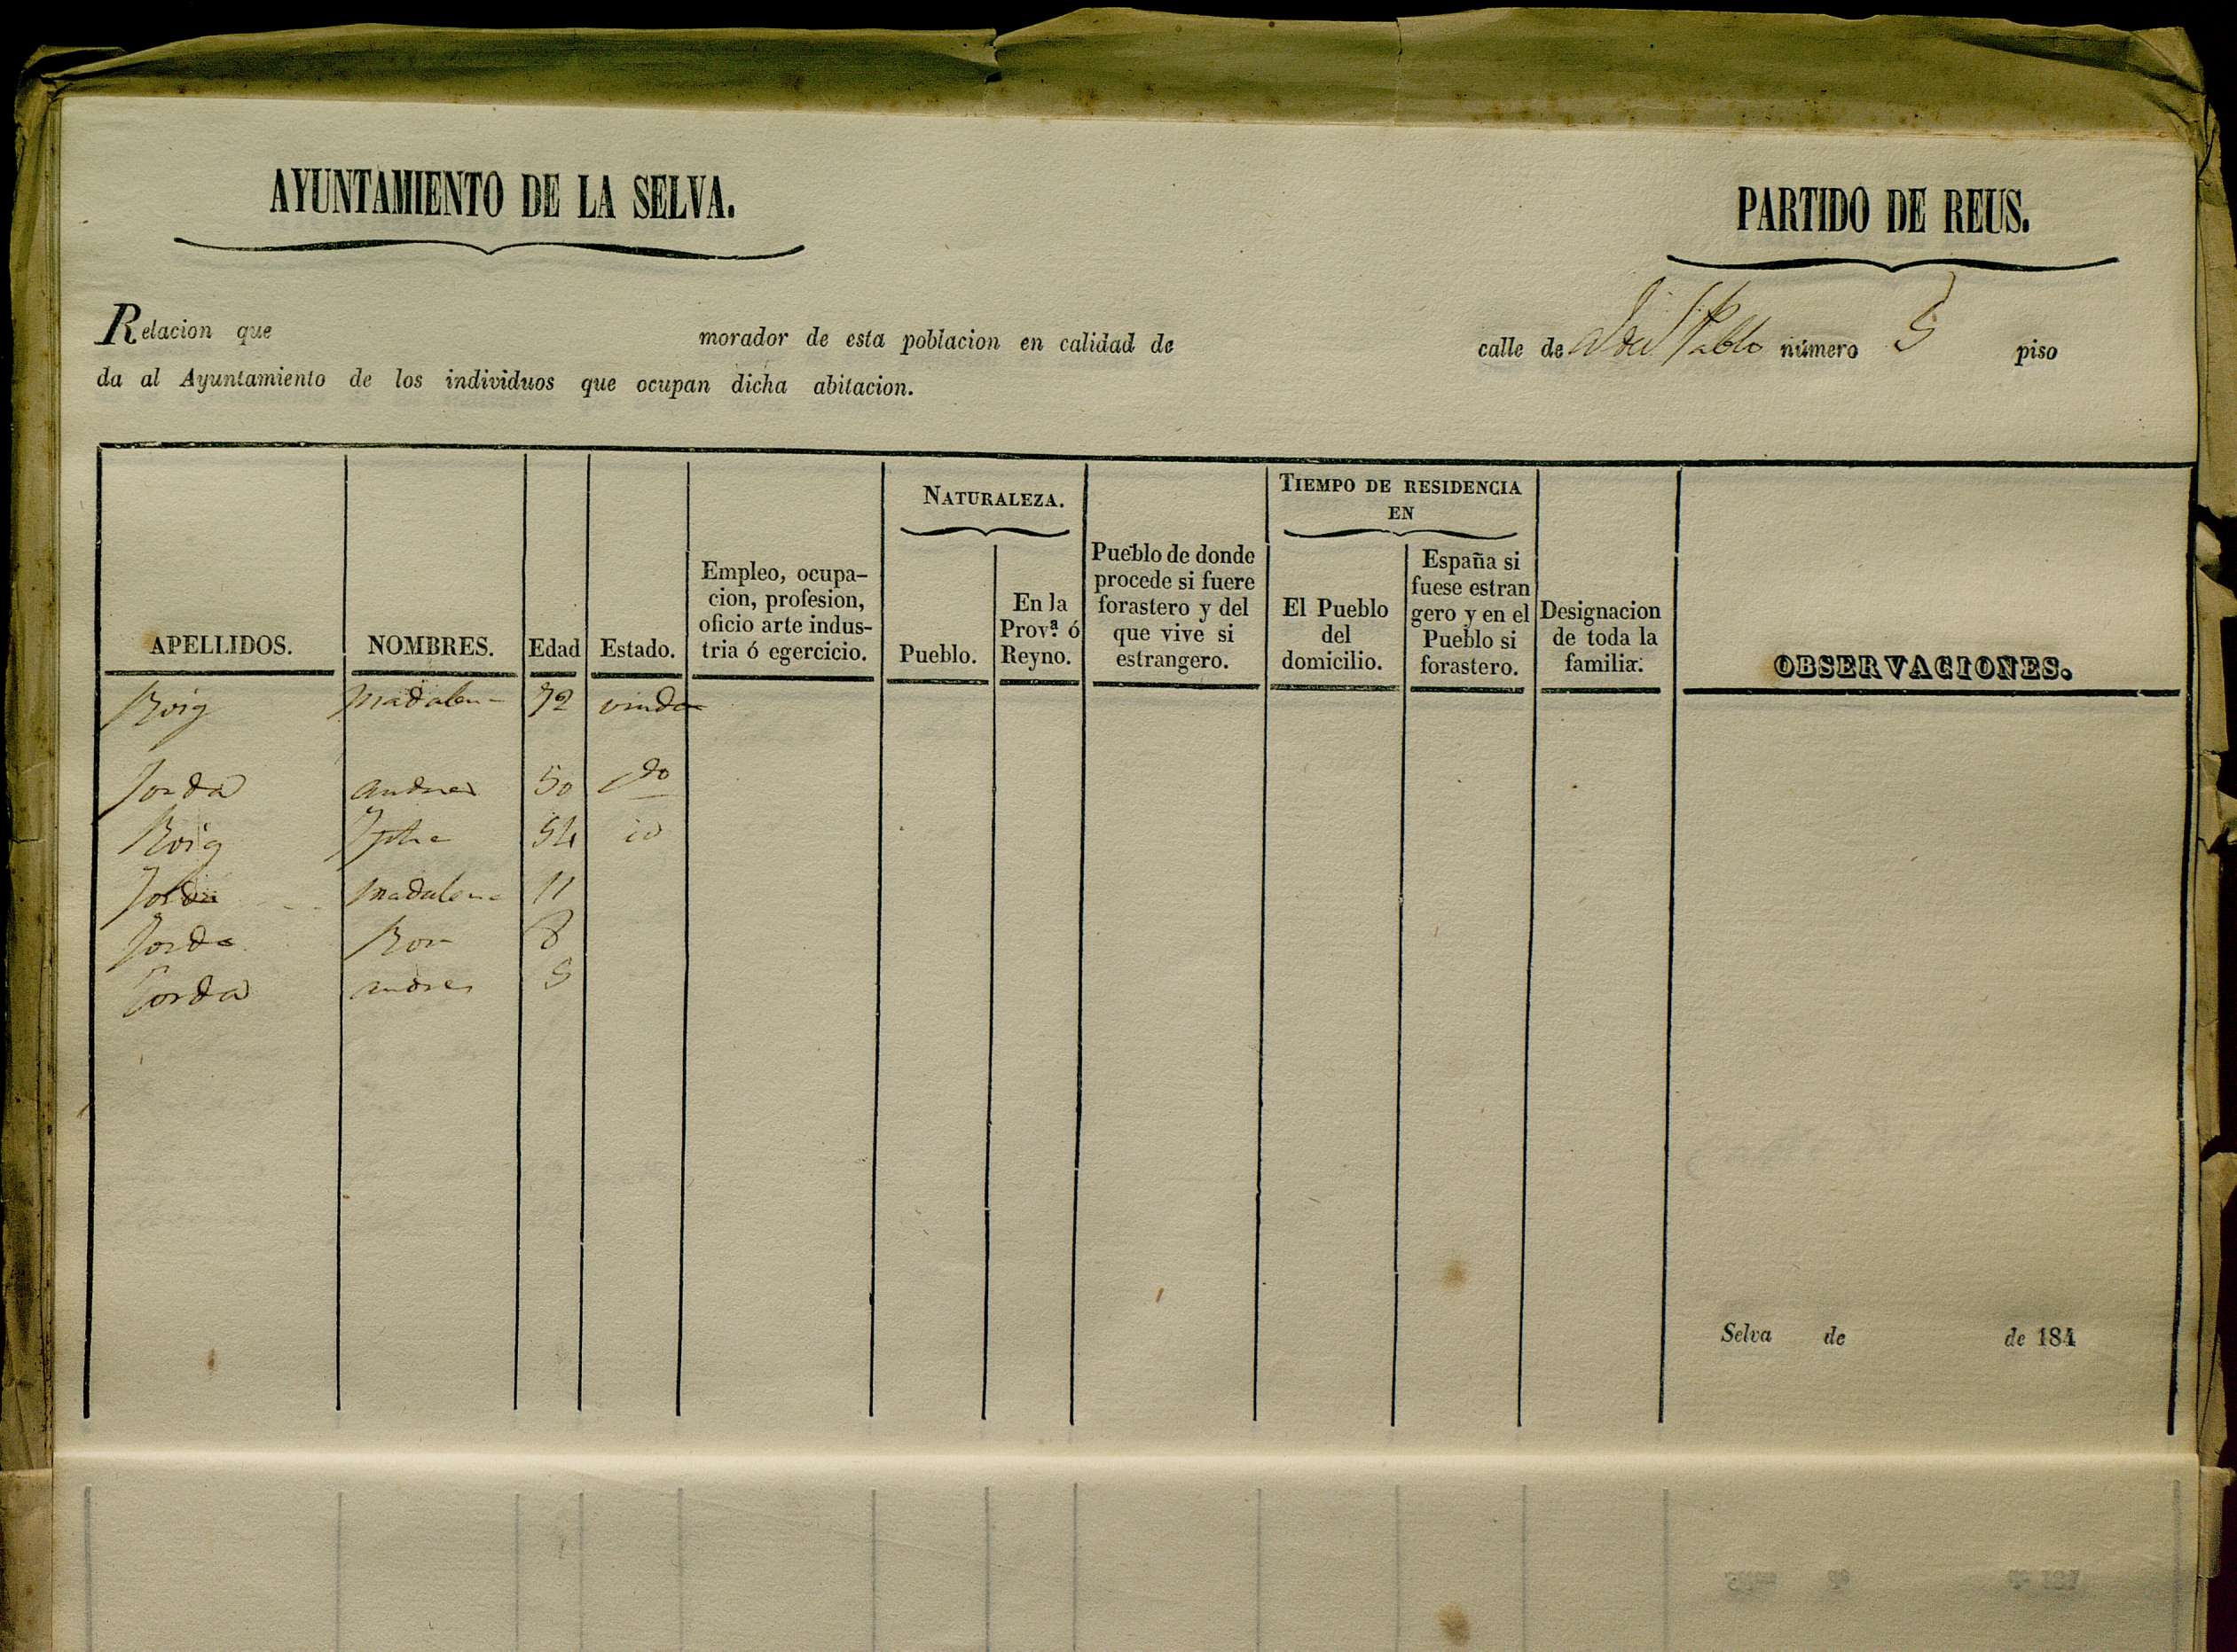 AYUNTAMIENTO DE LA SELVA.
PARTIDO DE REUS.
Relacion que morador de esta poblacion en calidad de calle de Pablo número 5 piso
da al Ayuntamiento de los individuos que ocupan dicha abitacion.
APELLIDOS.
NOMBRES.
Edad
Estado.
Empleo, ocupa-
cion, profesion,
oficio arte indus-
tria ó egercicio.
NATURALEZA.
Pueblo.
En la
Prov.ª ó
Reyno.
Pueblo de donde
procede si fuere
forastero y del
que vive si
estrangero.
TIEMPO DE RESIDENCIA
EN
El Pueblo
del
domicilio.
España si
fuese estran
gero y en el
Pueblo si
forastero.
Designacion
de toda la
familia.
OBSERVACIONES.
Roig Madalena 72 viuda
Jorda Andres 50
Roig 54 id
Jorda Madalena 11
Jorda Rosa 8
Jorda Andres 5
Selva de de 184